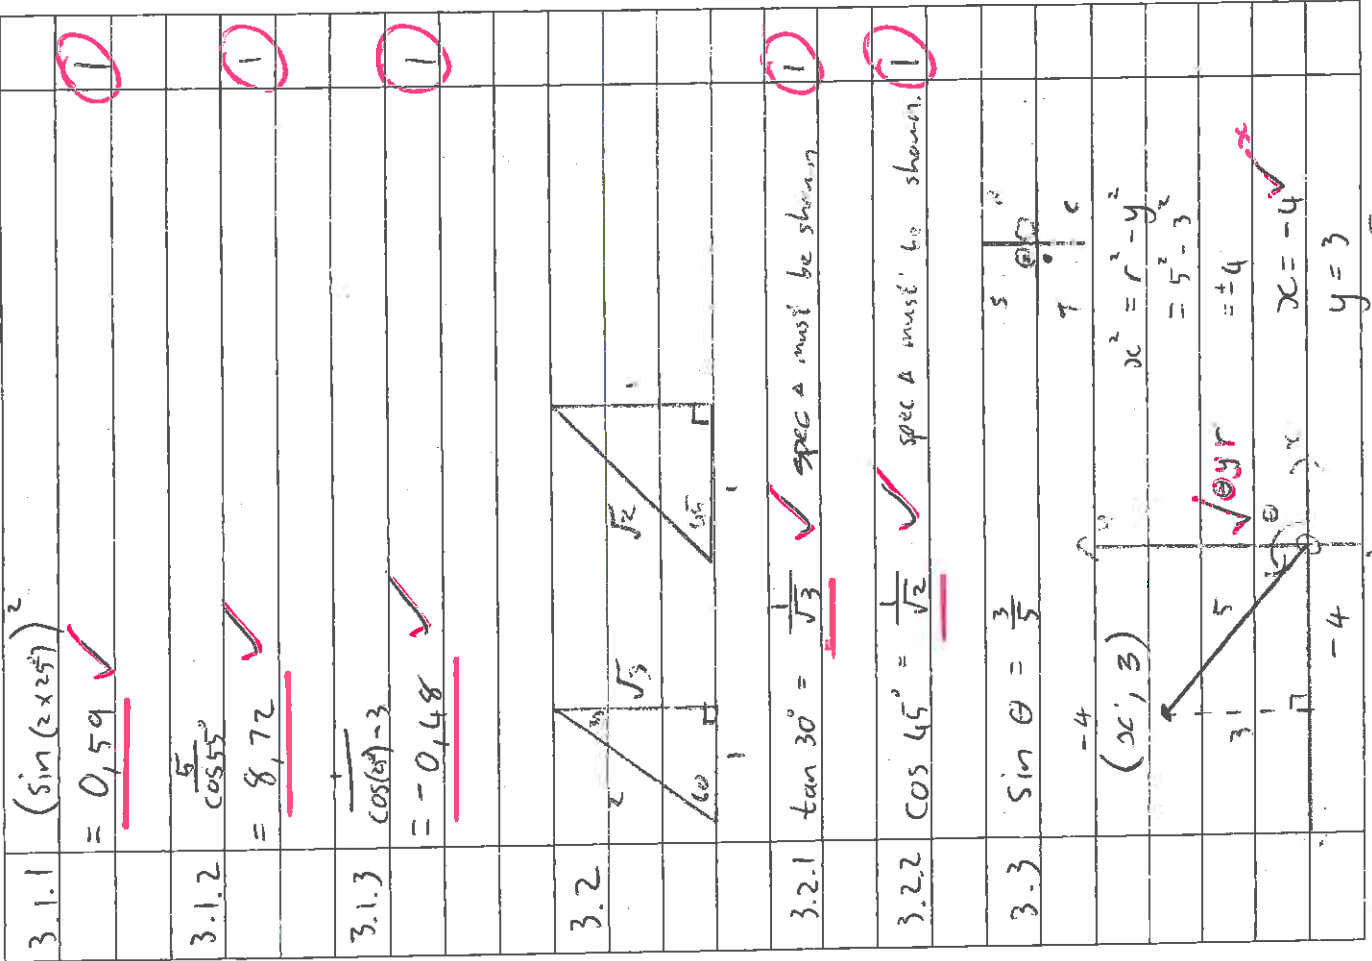 3.1.1 (sin(2×25))² 1
= 0,59
3.1.2 5/cos55° 1
= 8,72
3.1.3 1/cos(25°)-3 1
= -0,48
3.2
2 √3 30 60 1
√2 45 1 1
3.2.1 tan 30° = 1/√3 spec Δ must be shown 1
3.2.2 cos 45° = 1/√2 spec Δ must be shown. 1
3.3 sin θ = 3/5
S
T C
-4
(x, 3) x² = r² - y²
= 5² - 3²
3 5 θyr = ±4
θ x
x = -4 x
-4 y = 3